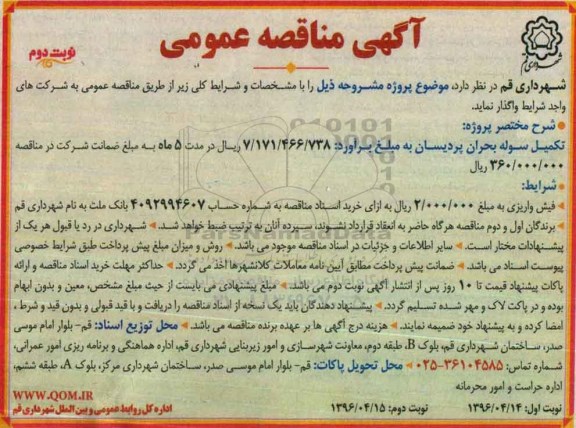 آگهی مناقصه عمومی
نوبت دوم
شهرداری قم در نظر دارد، موضوع پروژه مشروحه ذیل را با مشخصات و شرایط کلی زیر از طریق مناقصه عمومی به شرکت های
واجد شرایط واگذار نماید.
شرح مختصر پروژه:
تکمیل سوله بحران پردیسان به مبلغ برآورد: ۷/۱۷۱/۴۶۶/۷۳۸ ریال در مدت ۵ ماه به مبلغ ضمانت شرکت در مناقصه
۳۶۰/۰۰۰/۰۰۰ ریال
شرایط:
فیش واریزی به مبلغ ۲/۰۰۰/۰۰۰ ریال به ازای خرید اسناد مناقصه به شماره حساب ۴۰۹۲۹۹۴۶۰۷ بانک ملت به نام شهرداری قم
برندگان اول و دوم مناقصه هرگاه حاضر به انعقاد قرارداد نشوند، سپرده آنان به ترتیب ضبط خواهد شد. شهرداری در رد یا قبول هر یک از
پیشنهادات مختار است. سایر اطلاعات و جزئیات در اسناد مناقصه موجود می باشد. روش و میزان مبلغ پیش پرداخت طبق شرایط خصوصی
پیوست اسناد می باشد. ضمانت پیش پرداخت مطابق آیین نامه معاملات کلانشهرها اخذ می گردد. حداکثر مهلت خرید اسناد مناقصه و ارائه
پاکات پیشنهاد قیمت تا ۱۰ روز پس از انتشار آگهی نوبت دوم می باشد. مبلغ پیشنهادی می بایست از حیث مبلغ مشخص، معین و بدون ابهام
بوده و در پاکت لاک و مهر شده تسلیم گردد. پیشنهاد دهندگان باید یک نسخه از اسناد مناقصه را دریافت و با قید قبولی و بدون قید و شرط ،
امضا کرده و به پیشنهاد خود ضمیمه نمایند. هزینه درج آگهی ها بر عهده برنده مناقصه می باشد. محل توزیع اسناد: قم- بلوار امام موسی
صدر، ساختمان شهرداری قم، بلوک B، طبقه دوم، معاونت شهرسازی و امور زیربنایی شهرداری قم، اداره هماهنگی و برنامه ریزی امور عمرانی،
شماره تماس: ۳۶۱۰۴۵۸۵-۰۲۵ محل تحویل پاکات: قم- بلوار امام موسی صدر، ساختمان شهرداری مرکز، بلوک A، طبقه ششم،
اداره حراست و امور محرمانه
نوبت اول: ۱۳۹۶/۰۴/۱۴ نوبت دوم: ۱۳۹۶/۰۴/۱۵
WWW.QOM.IR
اداره کل روابط عمومی و بین الملل شهرداری قم